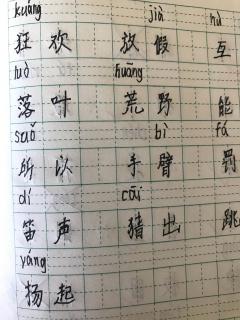 kuáng jià hù
狂欢 放假 互
luò huāng
落叶 荒野 能
suǒ bì fá
所以 手臂 罚
dí cāi
笛声 猜出 跳
yáng
扬起